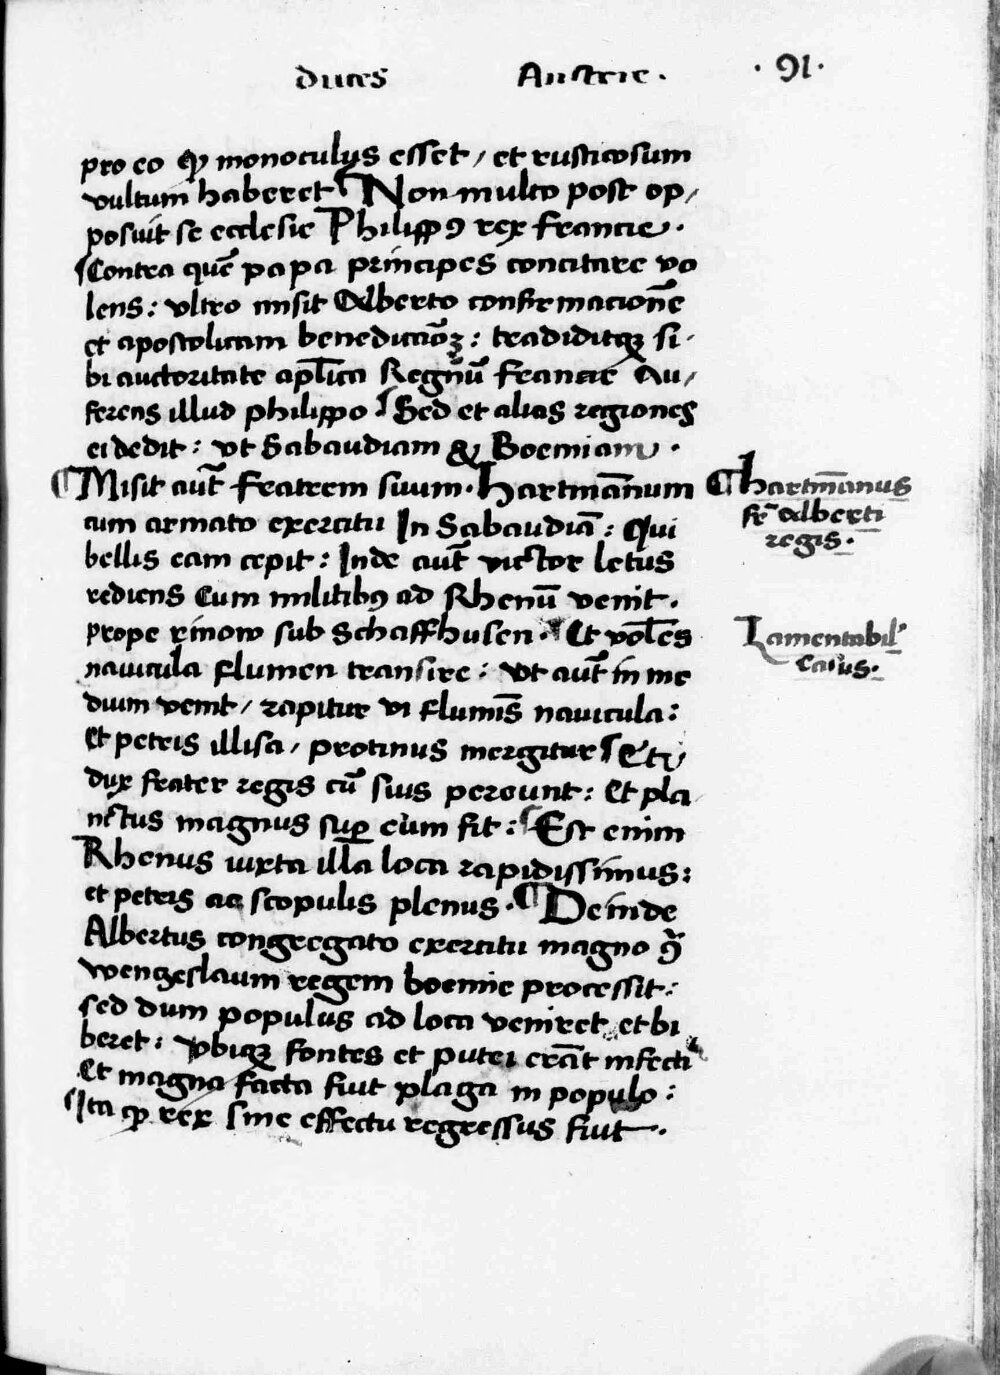 duces Austrie · · 91 ·
pro eo ꝙ monoculus esset / et rusticosum
vultum haberet Non multo post op/
posuit se ecclesie Philippꝰ rex francie ·
Contra quē papa principes concitare vo
lens : vltro misit Alberto confirmacionē
et apostolicam benedictiōꝫ : tradiditqꝫ si-
bi auctoritate apl̄ica Regnū̄ francie Au/
ferens illud philippo Sed et alias regiones
ei dedit : vt Sabaudiam & Boemiam ·
¶ Misit aut̄ fratrem suum · hartman̄num
cum armato exercitu In Sabaudiā : Qui
bellis eam cepit : Inde aut̄ victor letus
rediens Cum militibꝰ ad Rhenū venit ·
prope rinow sub Schaffhusen · Et vol̄es
nauicula flumen transire : vt aut̄ in me
dium venit / rapitur vi flumīs nauicula :
Et petris illisa / protinus mergitur Et
dux frater regis cū suis pereunt : Et pla
nctus magnus suꝑ eum fit : Est enim
Rhenus iuxta illa loca rapidissimus :
et petris ac scopulis plenus · ¶ Deinde
Albertus congregato exercitu magno ꝯ̄
wenczeslaum regem boemie processit :
sed dum populus ad loca veniret et bi
beret : vbiqꝫ fontes et putei erāt infecti
Et magna facta fuit plaga in populo :
Ita ꝙ rex sine effectu regressus fuit ·
¶ hartmān̄us
fr̄ Alberti
regis ·
Lamentabil'
casus ·